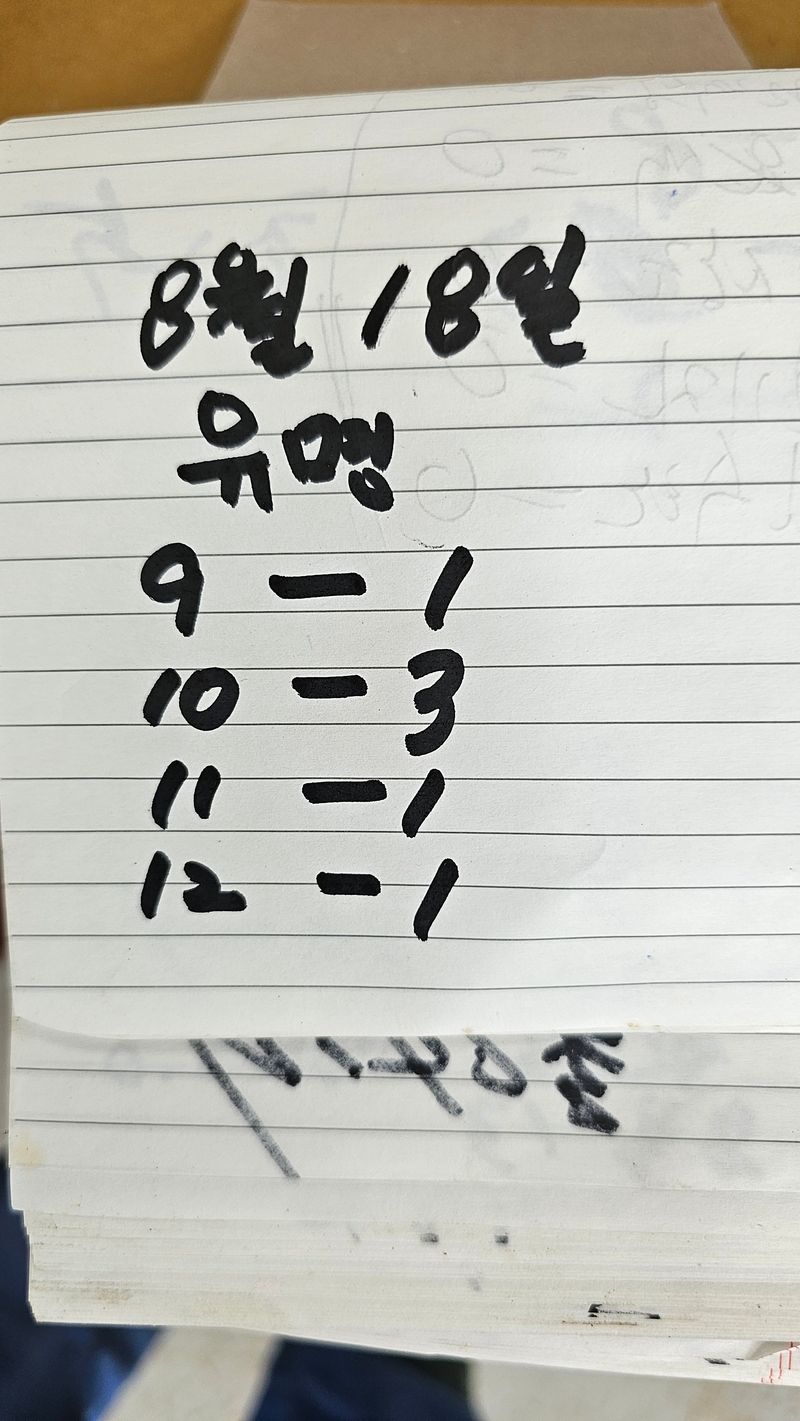 8월 18일
유명
9 - 1
10 - 3
11 - 1
12 - 1